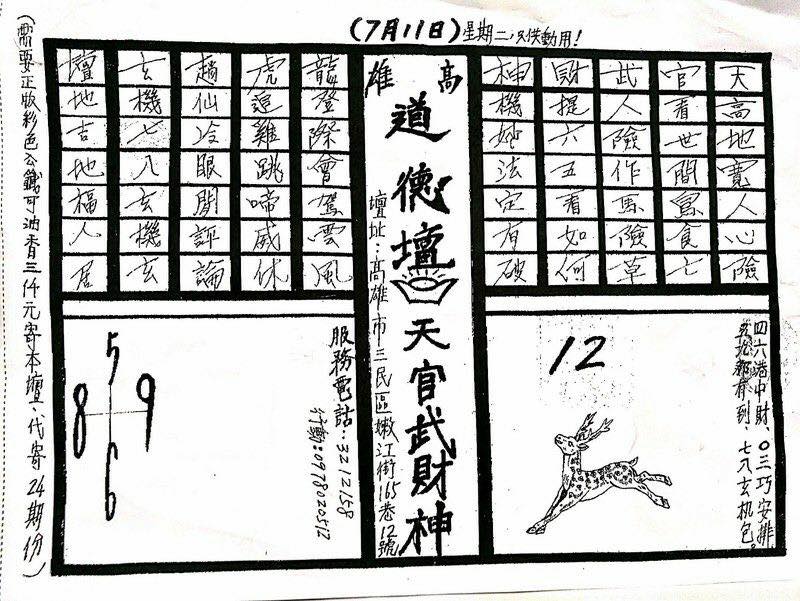 (7月11日)星期二只供動用!
天高地寬人心險
官看世間寓食七
武人險作馬險草
財提六五看如何
神機妙法定有破
高雄
道德壇天官武財神
壇址:高雄市三民區嫩江街165巷12號
龍登際會駕雲風
虎逗雞跳啼威休
趙仙冷眼閒評論
玄機七八玄機玄
壇地吉地福人居
四六港中財、〇三巧安排
五九都有到、七八玄机包。
12
服務電話:3212158
行動:0978020512
5
8 9
6
(需要正版彩色公籤可油香三仟元寄本壇、代寄24期份)